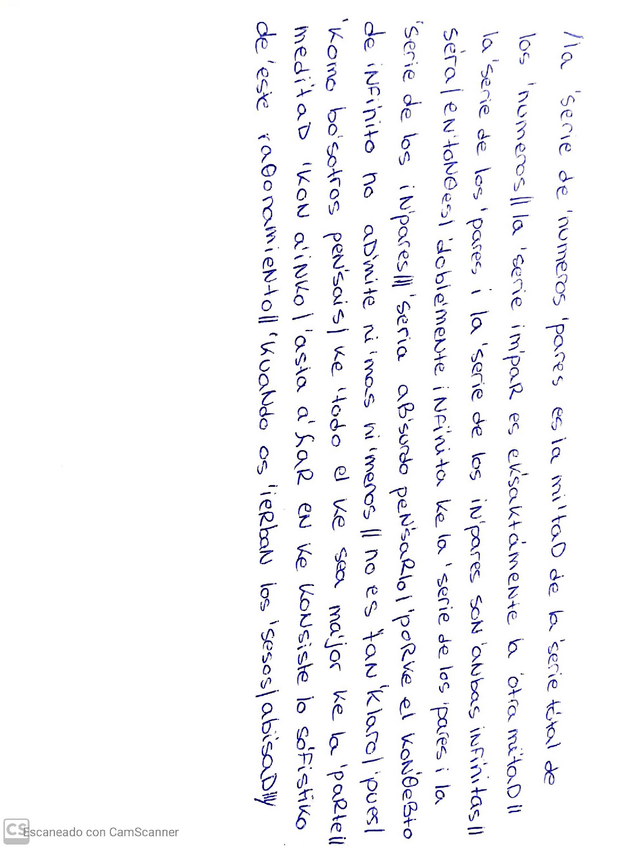 /la ˈserie de ˈnumeros ˈpares es la miˈtaD de la ˈserie toˈtal de
los ˈnumeros// la ˈserie imˈpaR es ekˈsaktáˈmente la ˈotra miˈtaD//
la ˈserie de los ˈpares i la ˈserie de los iNˈpares soN ˈaNbas iNfiˈnitas//
seˈra/ eNˈtoNθes/ ˈdobleˈmente iNfiˈnita ke la ˈserie de los ˈpares i la
ˈserie de los iNˈpares/// ˈseria aBˈsurdo peNˈsaRlo/ ˈpoRke el koNˈθeBto
de iNfiˈnito no aDˈmite ni ˈmas ni ˈmenos// no es ˈtaN ˈklaro/ ˈpues/
ˈkomo boˈsotros peNˈsais/ ke ˈtodo el ke sea maˈjor ke la ˈpaRte//
mediˈtaD ˈkoN aˈiNko/ ˈasta aˈʎaR eN ke koNsiste lo soˈfistiko
de ˈeste raθonamieNto// ˈkuaNdo os ˈieRbaN los ˈsesos/ abiˈsaD///
CS Escaneado con CamScanner